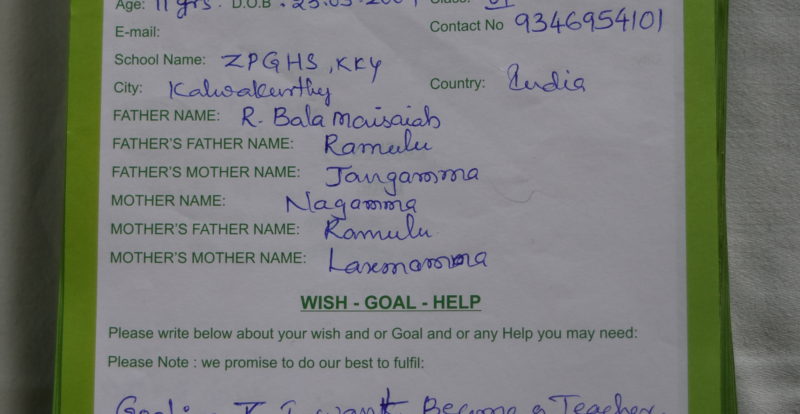 Age: 11 yrs. D.O.B. 25.05.200 Class: 6
E-mail: Contact No 9346954101
School Name: ZPGHS, KKY
City: Kalwakurthy Country: India
FATHER NAME: R. Bala Maisaiah
FATHER'S FATHER NAME: Ramulu
FATHER'S MOTHER NAME: Jangamma
MOTHER NAME: Nagamma
MOTHER'S FATHER NAME: Ramulu
MOTHER'S MOTHER NAME: Laxmamma
WISH - GOAL - HELP
Please write below about your wish and or Goal and or any Help you may need:
Please Note : we promise to do our best to fulfil:
Goal: I want Become a Teacher.